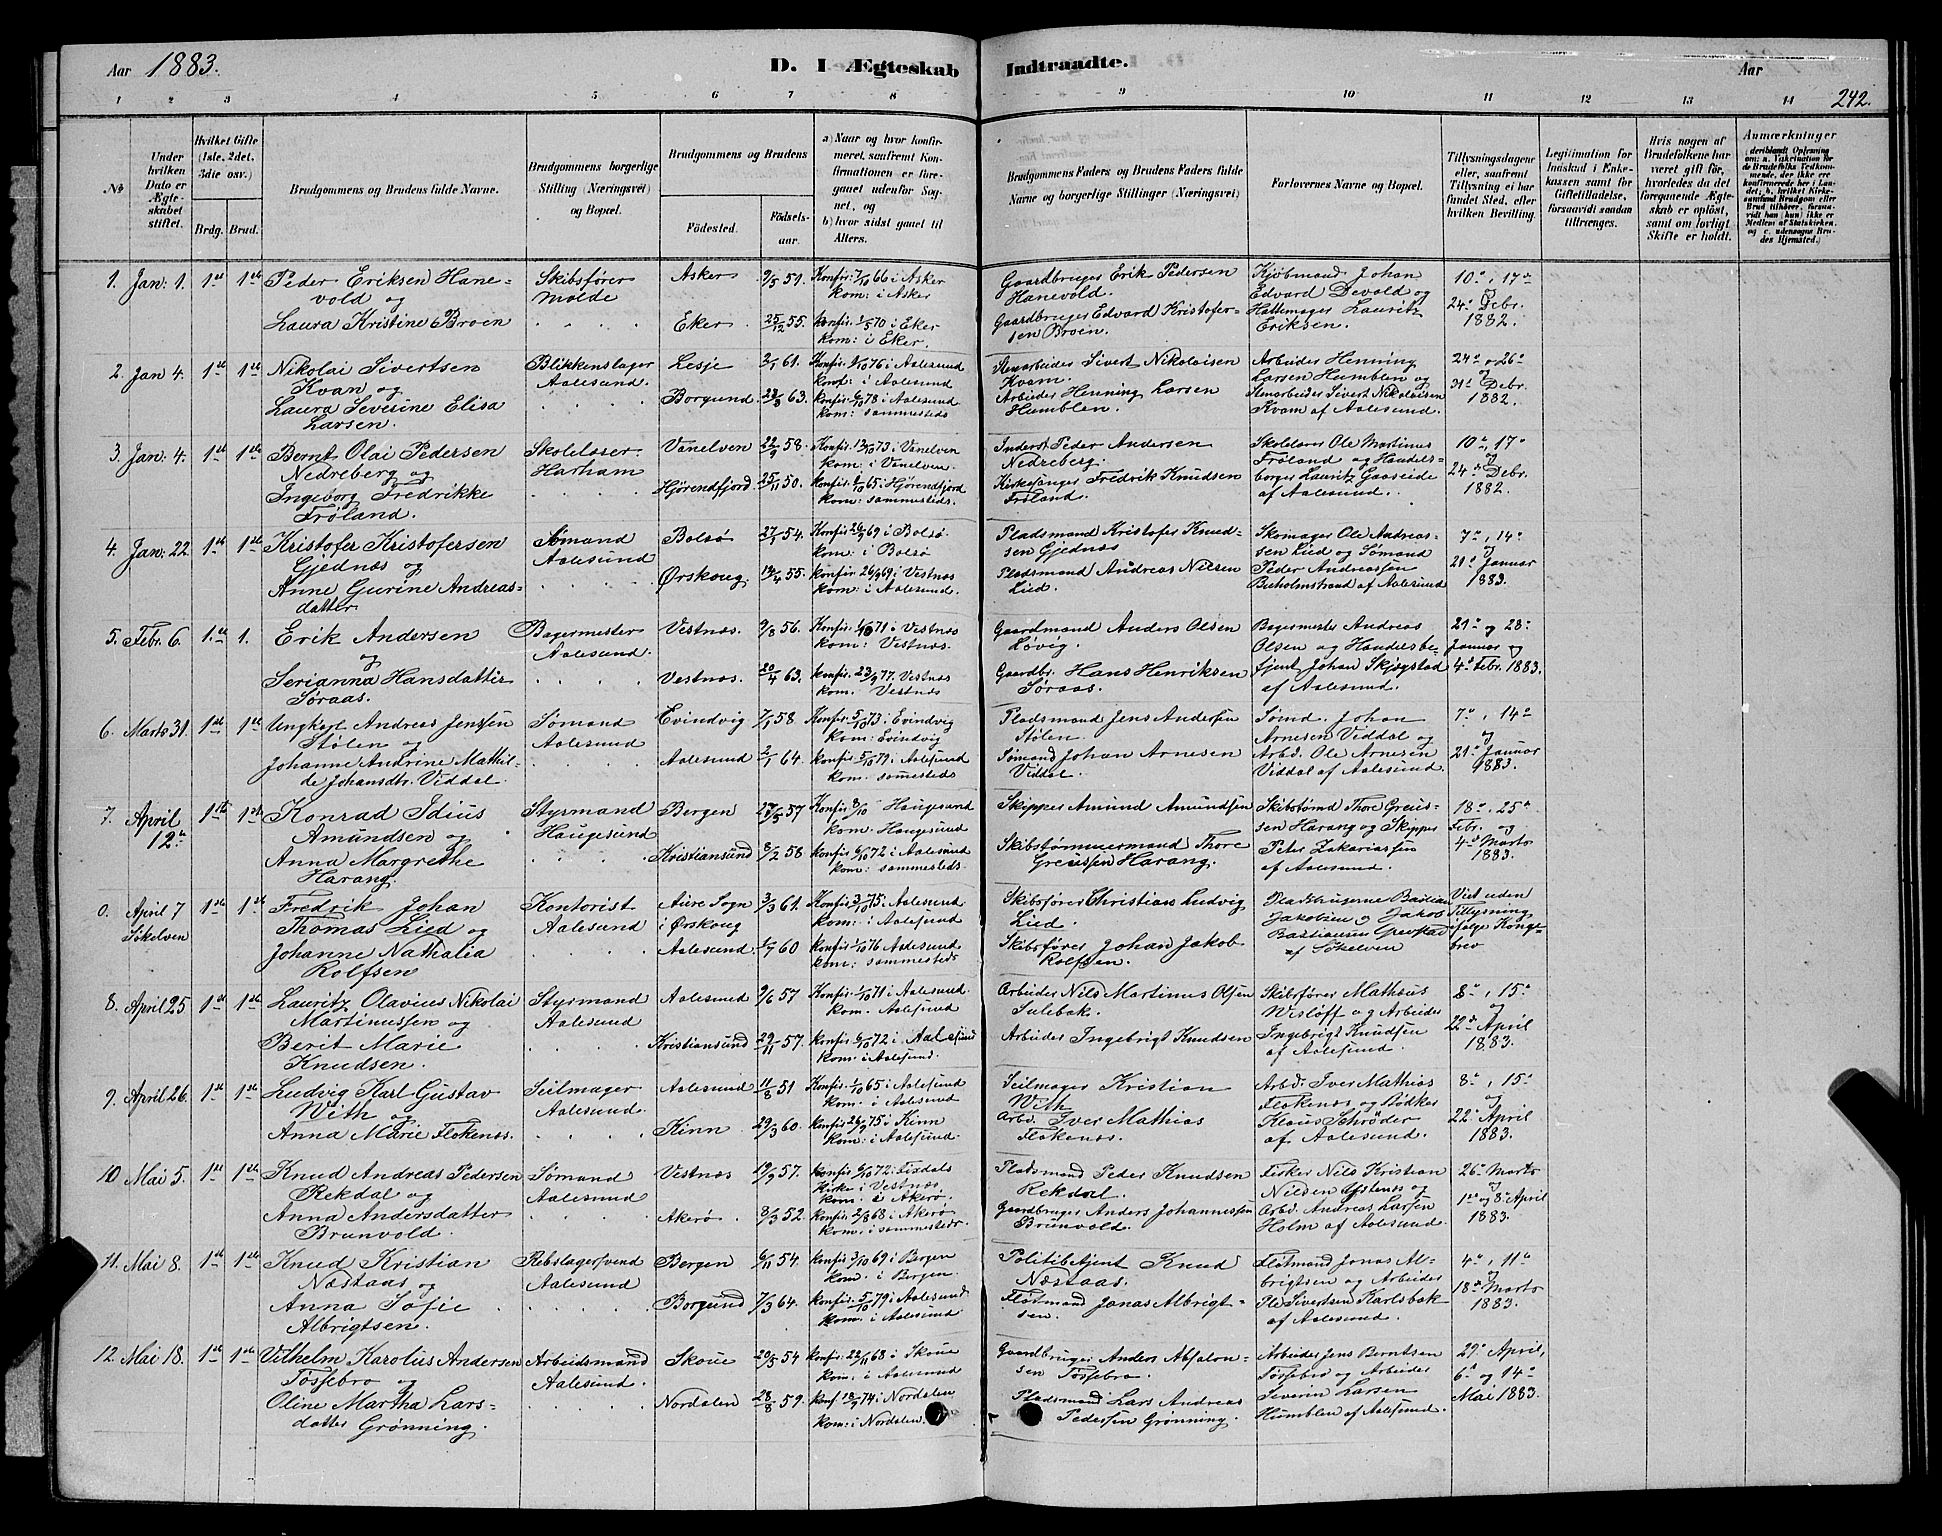 Aar 1883.
D. I Ægteskab Indtraadte.
Aar
1 2 3 4 5 6 7 8 9 10 11 12 13 14 242.
No
Under hvilken Dato er Ægteskabet stiftet.
Hvilket Gifte (1ste, 2det, 3die osv.)
Brdg. Brud.
Brudgommens og Brudens fulde Navne.
Brudgommens borgerlige Stilling (Næringsvei) og Bopæl.
Brudgommens og Brudens
Fødested. Fødselsaar.
a) Naar og hvor konfirmeret, saafremt Konfirmationen er foregaaet udenfor Sognet, og
b) hvor sidst gaaet til Alters.
Brudgommens Faders og Brudens Faders fulde Navne og borgerlige Stillinger (Næringsvei)
Forlovernes Navne og Bopæl.
Tillysningsdagene eller, saafremt Tillysning ei har fundet Sted, efter hvilken Bevilling.
Legitimation for Indskud i Enkekassen samt for Giftetilladelse, forsaavidt saadan tiltrænges.
Hvis nogen af Brudefolkene har været gift før, hvorledes da det foregaaende Ægteskab er opløst, samt om lovligt Skifte er holdt.
Anmærkninger
1. Jan: 1. 1ste 1ste Peder Eriksen Hanevold og
Skibsfører Molde
Asker 9/5 51. Konfir: 7/10 66 i Asker kom: i Asker
Gaardbruger Erik Pedersen Hanevold.
Kjøbmand Johan Edvard Devold og Hattemager Lauritz Eriksen.
10de, 17de 24de Debr. 1882.
Laura Kristine Broen
Eker 25/12 55. konfir: 1/5 70 i Eker kom: i Eker.
Gaardbruger Edvard Kristofersen Broen.
2. Jan 4. 1ste 1ste Nikolai Sivertsen Kvan og
Blikkenslager Aalesund.
Lesje 3/1 61. Konfir: 1/10 76 i Aalesund kom: i Aalesund
Stenarbeider Sivert Nikolaisen Kvam.
Arbeider Henning Larsen Humblen og Stenarbeider Sivert Nikolaisen Kvam af Aalesund.
24de og 26de og 31de Debr. 1882.
Laura Severine Elisa Larsen.
Borgund 23/8 63. konfir: 6/10 78 i Aalesund kom: sammesteds
Arbeider Henning Larsen Humblen.
3. Jan: 4. 1ste 1ste Bernt Olai Pedersen Nedreberg og
Skolelærer Harham
Vanelven 22/9 58. Konfir: 12/10 73 i Vanelven kom: i Vanelven.
Inderst Peder Andersen Nedreberg.
Skolelærer Ole Martinus Frøland og Handelsborger Lauritz Gaaseide af Aalesund.
10de, 17de og 24de Debr. 1882.
Ingeborg Fredrikke Frøland.
Hjørendfjord 25/11 50. konfir: 1/10 65 i Hjørendfjord kom: sammesteds.
Kirkesanger Fredrik Knudsen Frøland.
4. Jan: 22. 1ste 1ste Kristofer Kristofersen Gjednæs og
Sømand Aalesund
Bolsø 27/1 54. Konfir: 26/9 69 i Bolsø. kom: i Bolsø
Pladsmand Kristofer Knudsen Gjednæs
Skomager Ole Andreassen Lied og Sømand Peder Andreassen Buholmstrand af Aalesund
7de, 14de og 21de Januar 1883.
Anne Gurine Andreasdatter.
Ørskoug 14/4 55. konfir: 26/9 69 i Vestnæs kom: i Aalesund.
Pladsmand Andreas Nilsen Lied.
5. Febr. 6. 1ste 1. Erik Andersen og
Bagermester Aalesund.
Vestnæs. 9/8 56. Konfir: 1/10 71 i Vestnæs kom: Vestnæs.
Gaardmand Anders Olsen Løvig.
Bagermester Andreas Olsen og Handelsbefjent Johan Skjegstad af Aalesund.
21de og 28de Januar og 4de Febr. 1883.
Serianna Hansdatter Søraas.
Vestnæs. 20/4 63. konfir: 23/9 77. Vestnæs kom: Vestnæs
Gaardbr. Hans Henriksen Søraas.
6. Marts 31. 1ste 1ste Ungkarl Andreas Jenssen Stølen og
Sømand Aalesund
Evindvig 7/1 58. Konfir: 5/10 73 i Evindvig kom: Evindvig
Pladsmand Jens Andersen Stølen.
Sømd. Johan Arnesen Viddal og Arbd. Ole Arnesen Viddal af Aalesund.
7de, 14de og 21de Januar 1883.
Johanne Andrine Mathilde Johansdtr. Viddal.
Aalesund 2/1 64. konfir: 5/10 79 i Aalesund kom: sammesteds
Sømand Johan Arnesen Viddal.
7. April 12te 1ste 1ste Konrad Idius Amundsen og
Styrmand Haugesund
Bergen 27/5 57 Konfir: 8/10 Haugesund kom: Haugesund
Skipper Amund Amundsen
Skibstømd Thore Greussen Harang og Skipper Peter Zakariassen af Aalesund.
18de, 25de Febr. og 4de Marts 1883.
Anna Margrethe Harang.
Kristiansund 8/2 58 konfir: 6/10 72 i Aalesund kom: sammesteds.
Skibstømmermand Thore Greussen Harang.
0. April 7 Søkelven 1ste 1ste Fredrik Johan Thomas Lied og
Kontorist Aalesund
Aure Sogn i Ørskoug 3/3 61. Konfir: 3/10 75 i Aalesund kom: i Aalesund
Skibsfører Christian Ludvig Lied
Gaardbrugerne Bastian Jakobsen og Jakob Bastiansen af Søkelven
Viet uden Tillysning ifølge Kongebrev
Johanne Nathalia Rolfsen
Aalesund. 1/7 60 Konfir: 1/10 76 Aalesund kom: sammesteds
Skibsfører Johan Jakob Rolfsen.
8. April 25 1ste 1ste Lauritz Olavius Nikolai Martinussen og
Styrmand Aalesund
Aalesund 9/6 57 Konfir: 1/10 71 i Aalesund kom. Aalesund
Arbeider Nils Martinus Olsen Sulebak.
Skibsfører Mathæus Wisløff og Arbeider Ingebrigt Knudsen af Aalesund.
8de, 15de og 22de April 1883.
Berit Marie Knudsen.
Kristiansund 29/11 57. Konfir: 6/10 72 i Aalesund kom: i Aalesund.
Arbeider Ingebrigt Knudsen
9. April 26. 1ste 1ste Ludvig Karl Gustav With og
Seilmager Aalesund.
Aalesund 11/8 51 Konfir: 1/10 65 i Aalesund kom. i Aalesund
Seilmager Kristian With
Arbd. Iver Mathias Flokenæs og Bødker Klaus Schrøder af Aalesund.
8de, 15de og 22de April 1883.
Anna Marie Flokenæs.
Kinn 29/3 60. konfir: 26/9 75 i Kinn kom: i Aalesund.
Arbd. Iver Mathias Flokenæs.
10 Mai 5. 1ste 1ste Knud Andreas Pedersen Rekdal og
Sømand Aalesund
Vestnæs 19/9 57. konfir: 6/10 72. Fixdals Kirke i Vestnæs kom: i Akerø.
Pladsmand Peder Knudsen Rekdal.
Fisker Nils Kristian Nilsen og Arbd. Andreas Larsen Holm af Aalesund.
26de Marts og 1ste og 8de April 1883.
Anna Andersdatter Brunvold.
Akerø. 8/3 52. Konfir: 2/8 68 i Akerø kom: i sammesteds.
Gaardbruger Anders Johannessen Brunvold.
11. Mai 8. 1ste 1ste Knud Kristian Næstaas og
Rebslagersvend Aalesund
Bergen 6/11 54. konfir: 3/10 69 i Bergen kom. i Bergen.
Politibetjent Knud Næstaas.
Flotmand Jonas Albrigtsen og Arbeider Ole Sivertsen Karlsbak af Aalesund
4de, 11de og 18de Marts 1883.
Anna Sofie Albrigtsen.
Borgund 7/3 64. konfir: 5/10 79 i Aalesund kom. i Aalesund
Flotmand Jonas Albrigtsen.
12. Mai 18. 1ste 1ste Vilhelm Karolus Andersen Fossebro og
Arbeidsmand Aalesund.
Skoue 29/5 54 konfir: 22/11 68 i Skoue kom: i Aalesund
Gaardbruger Anders Absalonsen Fossebro.
Arbeider Jens Berntsen Fossebro og Arbeider Severin Larsen Humblen af Aalesund.
29de April, 6te og 14de Mai 1883.
Oline Martha Larsdatter Grønning.
Nordalen 28/8 59. konf 18/9 74 i Nordalen kom: i Nordalen.
Pladsmand Lars Andreas Pedersen Grønning.